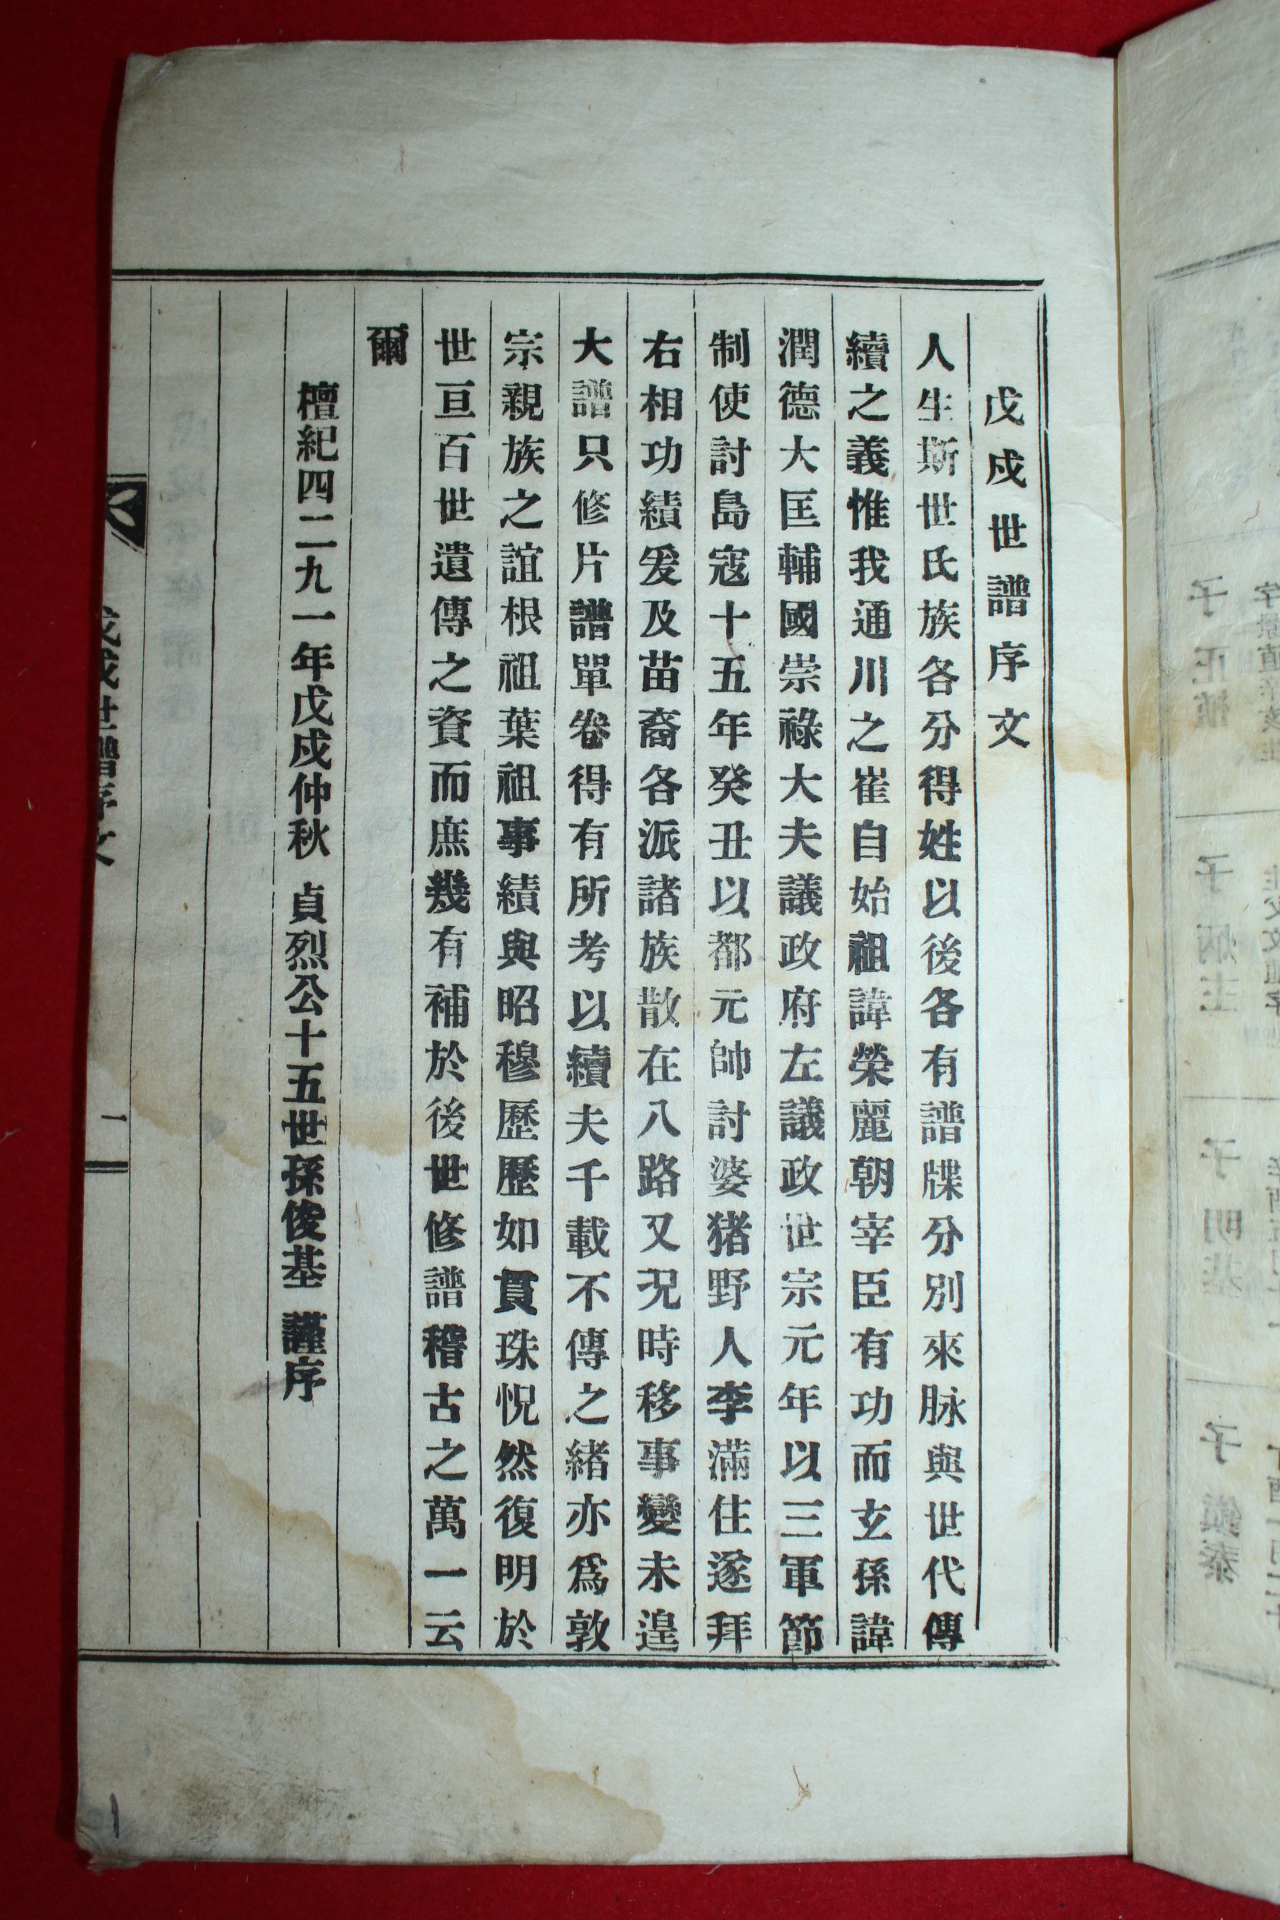 戊戌世譜序文
人生斯世氏族各分得姓以後各有譜牒分別來脉與世代傳
續之義惟我通川之崔自始祖諱榮麗朝宰臣有功而玄孫諱
潤德大匡輔國崇祿大夫議政府左議政世宗元年以三軍節
制使討島寇十五年癸丑以都元帥討婆猪野人李滿住遂拜
右相功績爰及苗裔各派諸族散在八路又況時移事變未遑
大譜只修片譜單卷得有所考以續夫千載不傳之緒亦爲敦
宗親族之誼根祖葉祖事績與昭穆歷歷如貫珠怳然復明於
世亘百世遺傳之資而庶幾有補於後世修譜稽古之萬一云
爾
檀紀四二九一年戊戌仲秋 貞烈公十五世孫俊基 謹序
戊戌世譜序文
一
子正植
子炳圭
子明基
子鎭泰